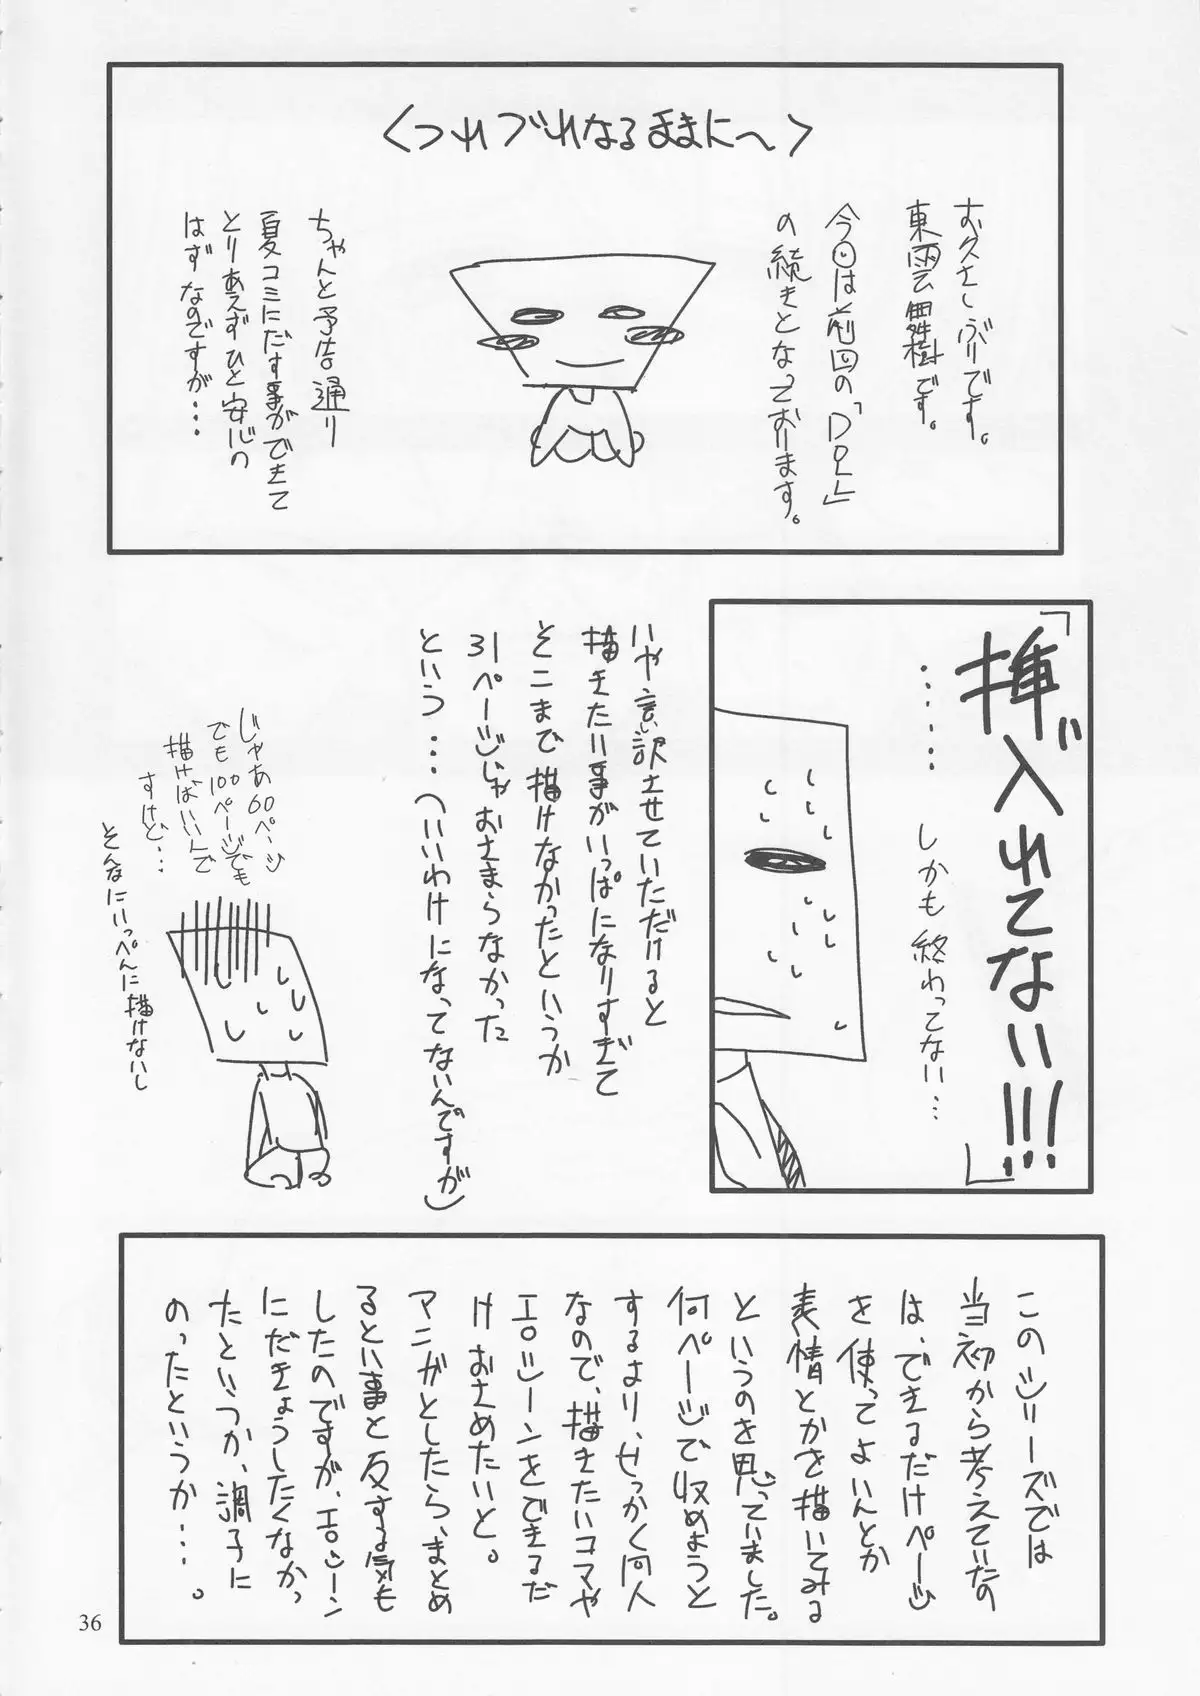 <つれづれなるままに〜>
お久さしぶりです。
東雲舞樹です。
今回は前回の「DOL」
の続きとなっております。
ちゃんと予告通り
夏コミにだす事ができて
とりあえずひと安心の
はずなのですが・・・
「挿入れてない!!!」
・・・・・・しかも終わってない・・・
いや言い訳させていただけると
描きたい事がいっぱになりすぎて
そこまで描けなかったというか
31ページじゃおさまらなかった
という・・・(いいわけになってないんですが)
じゃあ60ページ
でも100ページでも
描けばいいんで
すけど・・・
そんなにいっぺんに描けないし
このシリーズでは
当初から考えていたの
は、できるだけページ
を使ってよいんとか
表情とかを描いてみる
というのを思っていました。
何ページで収めようと
するより、せっかく同人
なので、描きたいコマや
エロシーンをできるだ
けおさめたいと。
マニがとしたら、まとめ
るという事と反する気も
したのですが、エロシーン
にだきょうしたくなかっ
たというか、調子に
のったというか・・・。
36